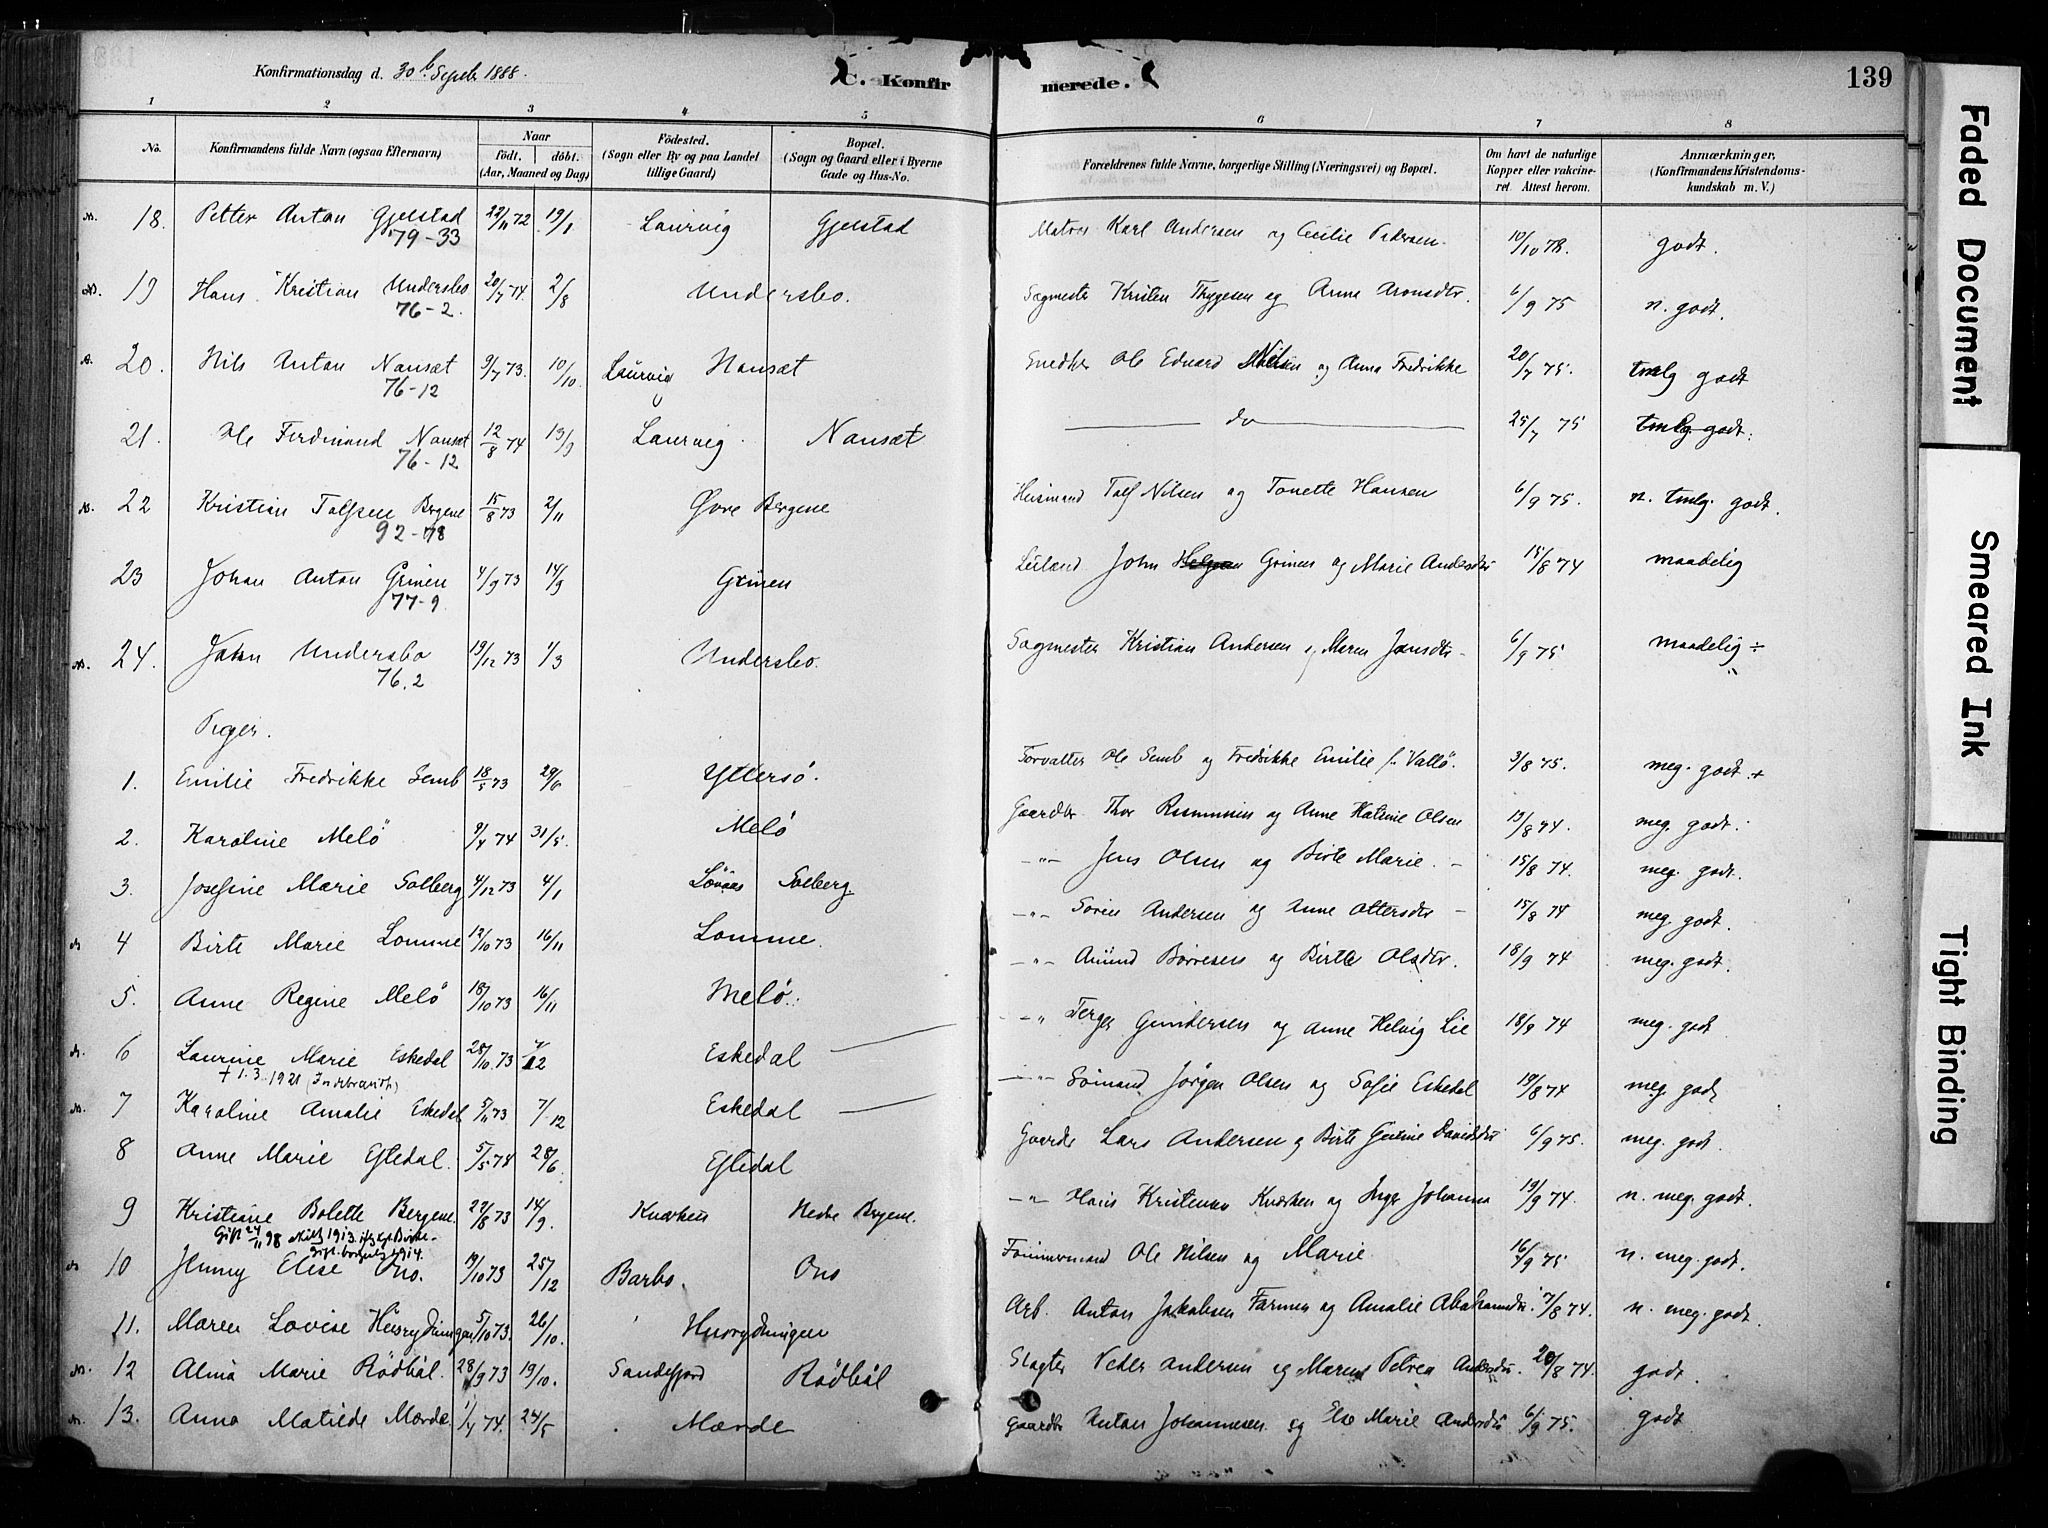 Konfirmationsdag d. 30te Septb 1888. C. Konfirmerede. 139
1 2 3 4 5 6 7 8
No. Konfirmandens fulde Navn (ogsaa Efternavn) Naar födt. döbt. (Aar, Maaned og Dag) Födested. (Sogn eller By og paa Landet tillige Gaard) Bopæl. (Sogn og Gaard eller i Byerne Gade og Hus-No. Forældrenes fulde Navne, borgerlige Stilling (Næringsvei) og Bopæl. Om havt de naturlige Kopper eller vakcineret. Attest herom. Anmærkninger, (Konfirmandens Kristendomskundskab m. V.)
18. Petter Anton Gjelstad 22/11 72 19/1 Laurvig Gjelstad Matros Karl Andersen og Cecilie Pedersen 10/10 78. godt.
79-33
19 Hans Kristian Undersbo 20/7 74. 2/8 Undersbo. Sagmester Kristen Thygesen og Anne Aronsdtr. 6/9 75 n. godt.
76-2.
20. Nils Anton Nansæt 9/7 73. 10/10 Laurvig Nansæt Snedker Ole Edvard Nilsen og Anna Fredrikke 20/7 75. tmlg godt
76-12
21. Ole Ferdinand Nansæt 12/8 74 13/9 Laurvig. Nansæt do 25/7 75 tmlg. godt.
76-12
22 Kristian Tolfsen Bergene 15/8 73 2/11 Øvre Bergene Husmand Tolf Nilsen og Tonette Hansen 6/9 75. n. tmlg. godt.
92-78
23 Johan Anton Grinen 4/9 73 14/9 Grinen Leiland John Grinen og Marie Andersdtr 15/8 74 maadelig
77-9
24. John Undersbo 19/12 73 1/3 Undersbo. Sagmester Kristian Andersen og Maren Jonsdtr 6/9 75 maadelig ÷
76.2
Piger.
1. Emilie Fredrikke Semb 18/5 73 29/6 Yttersö. Forvalter Ole Semb og Fredrikke Emilie f. Vallö. 3/8 75. meg. godt. +
2. Karoline Melö 9/4 74 31/5. Melö Gaardbr. Thor Rasmussen og Anne Katrine Olsen 19/8 74. meg. godt.
3. Josefine Marie Solberg 4/12 73 4/1 Løvaas Solberg. -"- Jens Olsen og Birte Marie. 15/8 74. meg. godt.
4 Birte Marie Lomme 12/10 73 16/11 Lomme. -"- Sören Andersen og Anne Ottersdtr 15/8 74 meg. godt.
5. Anne Regine Melö 18/10 73 16/11 Melö. -"- Amund Börresen og Birte Olsdtr. 18/9 74 meg. godt.
6 Laurine Marie Eskedal 28/10. 73 Eskedal -"- Terger Gundersen og Anne Helvig Lie 18/9 74 meg. godt
+ 1.3.1921
7 Karoline Amalie Eskedal 5/11 73 7/12 Eskedal -"- Sömand Jörgen Olsen og Sofie Eskedal 19/8 74 meg. godt
8 Anne Marie Efledal. 5/5 74 28/6. Efledal Gaardb Lars Andersen og Birte Davidsdtr 6/9 75. meg. godt.
9 Kristiane Bolette Bergene. 27/8 73 14/9. Knærken Nedre Bergene. -"- Hans Kristensen Knærken og Inger Johanna 19/9 74. n. meg. godt.
Gift 24/11 98
10 Jenny Elise Ono. 19/10 73 25/12 Barbo. Ono Tömmermand Ole Nilsen og Marie 16/9 75 n. meg. godt.
11. Maren Lovise Husrydningen 5/10 73. 26/10. Husrydningen Arb. Anton Jakobsen Farmen og Amalie Abrahamsdtr. 7/8 74. n. meg. godt.
12 Alma Marie Rödböl. 28/9 73 19/10. Sandefjord Rödböl Slagter Peder Andersen og Maren Petrea Andersdtr. 20/8 74. godt.
13. Anna Matilde Mærde 1/4 74. 24/5 Mærde Gaardbr Anton Johannesen og Else Marie Andersdtr 6/9 75. godt
Faded Document
Smeared Ink
Tight Binding